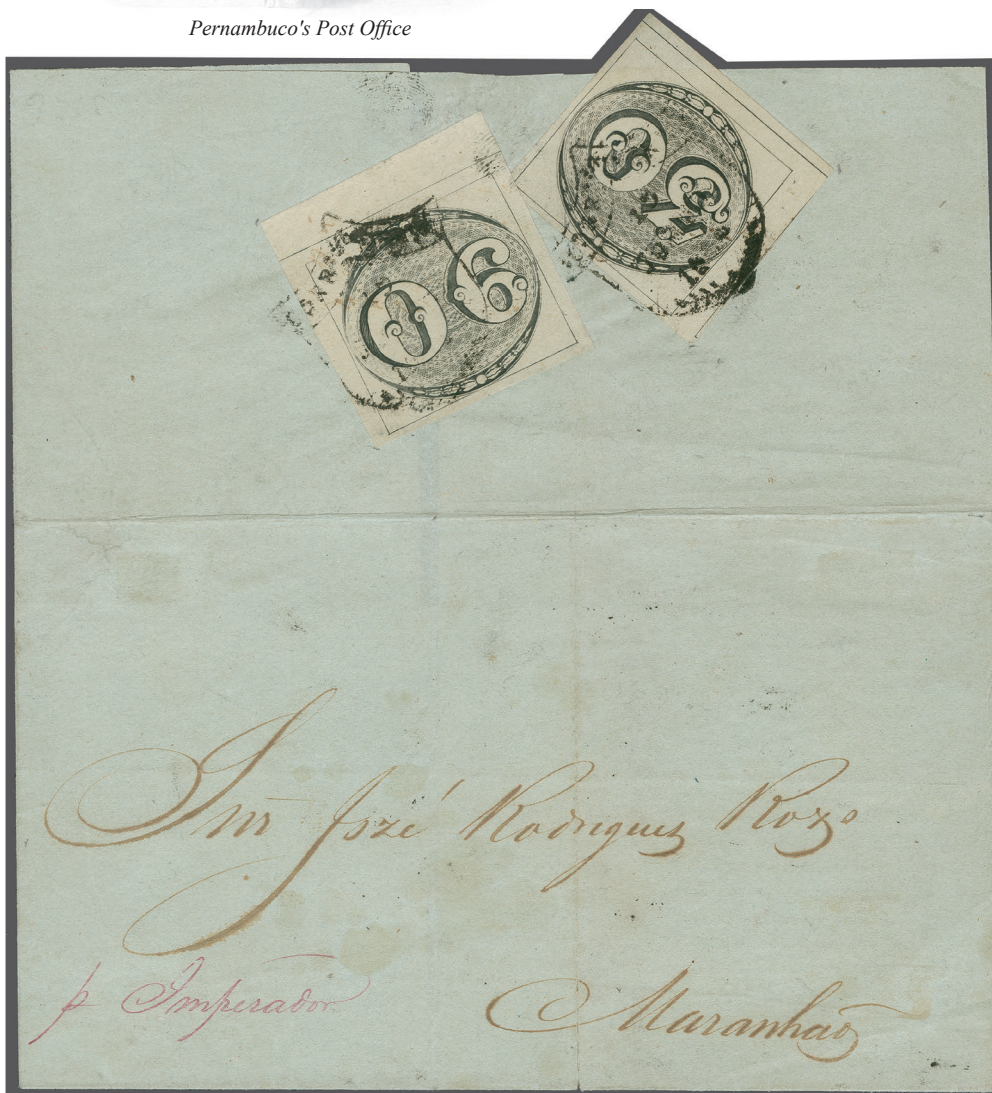 Pernambuco's Post Office
30
90
Snr José Rodrigues Roxo
p Imperador
Maranhão